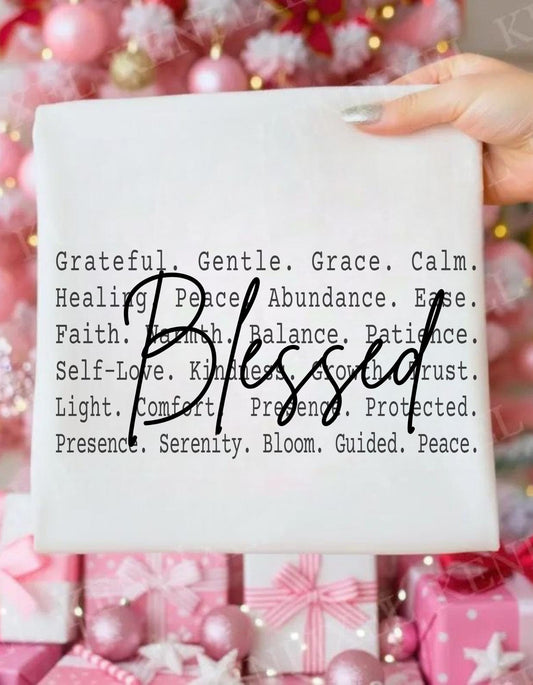 Grateful. Gentle. Grace. Calm.
Healing. Peace. Abundance. Ease.
Faith. Warmth. Balance. Patience.
Self-Love. Kindness. Growth. Trust.
Light. Comfort. Presence. Protected.
Presence. Serenity. Bloom. Guided. Peace.
Blessed